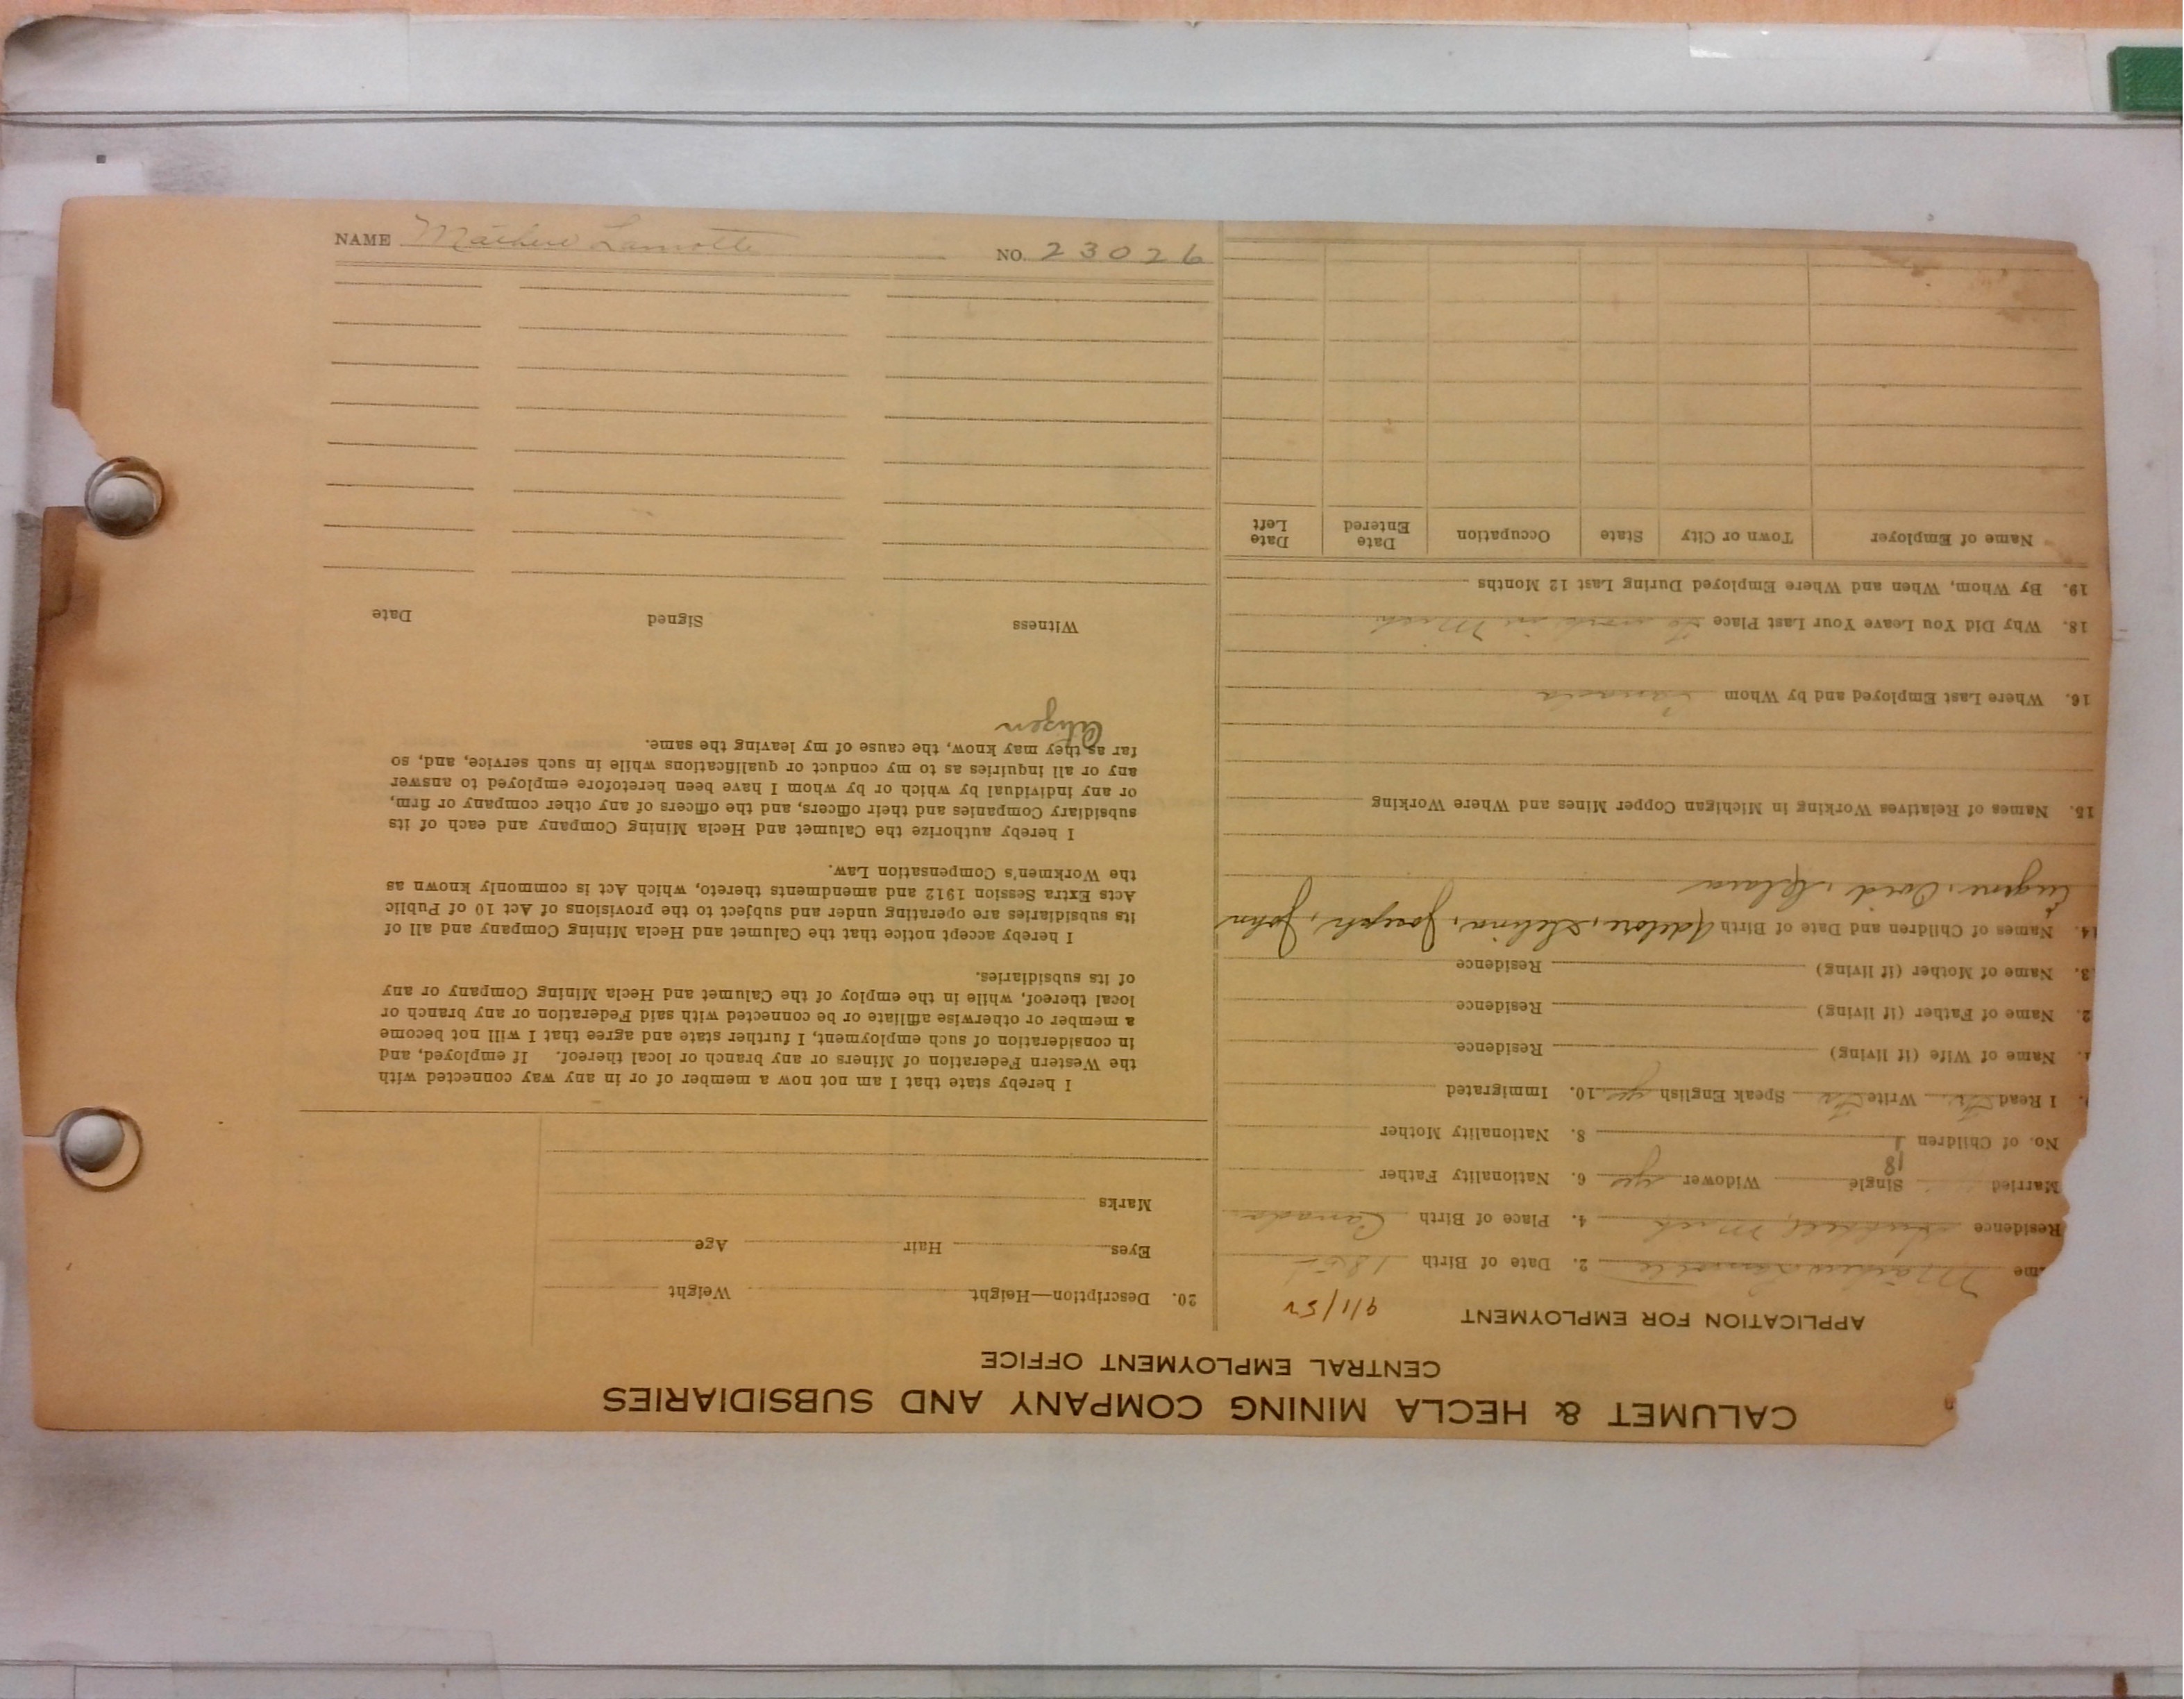 CALUMET & HECLA MINING COMPANY AND SUBSIDIARIES
CENTRAL EMPLOYMENT OFFICE
APPLICATION FOR EMPLOYMENT 9/1/52
me 2. Date of Birth
Residence Hubbell, Mich 4. Place of Birth Canada
Married Single Widower yes 6. Nationality Father
18
No. of Children 8. Nationality Mother
I Read Write Speak English yes 10. Immigrated
Name of Wife (if living) Residence
2. Name of Father (if living) Residence
3. Name of Mother (if living) Residence
14. Names of Children and Date of Birth Adelore, Joseph, John
Eugene, Ovid, Clara
15. Names of Relatives Working in Michigan Copper Mines and Where Working
16. Where Last Employed and by Whom Canada
18. Why Did You Leave Your Last Place To work in Mich
19. By Whom, When and Where Employed During Last 12 Months
Name of Employer Town or City State Occupation Date Entered Date Left
20. Description—Height Weight
Eyes Hair Age
Marks
I hereby state that I am not now a member of or in any way connected with
the Western Federation of Miners or any branch or local thereof. If employed, and
in consideration of such employment, I further state and agree that I will not become
a member or otherwise affiliate or be connected with said Federation or any branch or
local thereof, while in the employ of the Calumet and Hecla Mining Company or any
of its subsidiaries.
I hereby accept notice that the Calumet and Hecla Mining Company and all of
its subsidiaries are operating under and subject to the provisions of Act 10 of Public
Acts Extra Session 1912 and amendments thereto, which Act is commonly known as
the Workmen's Compensation Law.
I hereby authorize the Calumet and Hecla Mining Company and each of its
subsidiary Companies and their officers, and the officers of any other company or firm,
or any individual by which or by whom I have been heretofore employed to answer
any or all inquiries as to my conduct or qualifications while in such service, and, so
far as they may know, the cause of my leaving the same.
Citizen
Witness Signed Date
NAME Mathew Lamotte NO. 23026